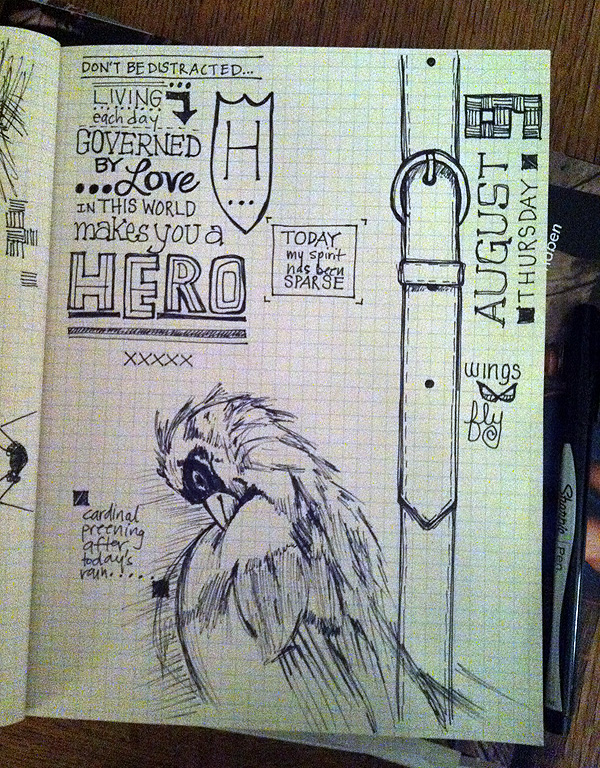 DON'T BE DISTRACTED...
LIVING
each day
GOVERNED
BY
...Love
IN THIS WORLD
makes you a
HERO
XXXXX
H
TODAY
my spirit
has been
SPARSE
cardinal
preening
after
today's
rain.....
AUGUST
THURSDAY
wings
fly
Sharpie Pen